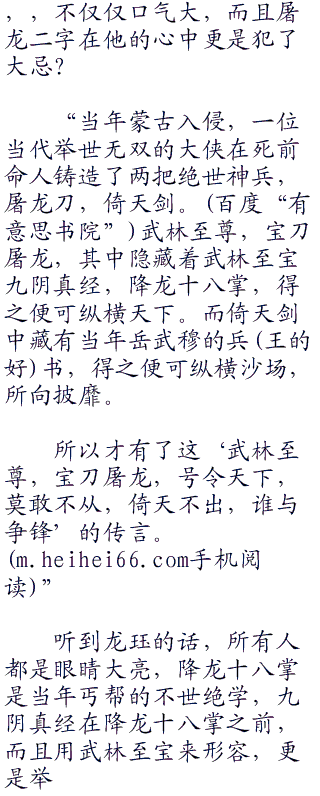 ，，不仅仅口气大，而且屠
龙二字在他的心中更是犯了
大忌？
“当年蒙古入侵，一位
当代举世无双的大侠在死前
命人铸造了两把绝世神兵，
屠龙刀，倚天剑。(百度“有
意思书院”)武林至尊，宝刀
屠龙，其中隐藏着武林至宝
九阴真经，降龙十八掌，得
之便可纵横天下。而倚天剑
中藏有当年岳武穆的兵(王的
好)书，得之便可纵横沙场，
所向披靡。
所以才有了这‘武林至
尊，宝刀屠龙，号令天下，
莫敢不从，倚天不出，谁与
争锋’的传言。
(m.heihei66.com手机阅
读)”
听到龙珏的话，所有人
都是眼睛大亮，降龙十八掌
是当年丐帮的不世绝学，九
阴真经在降龙十八掌之前，
而且用武林至宝来形容，更
是举